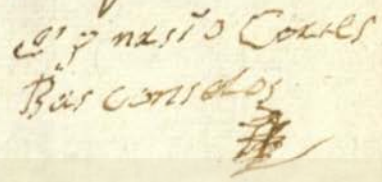 Ygnasio Cortes
Basconselos